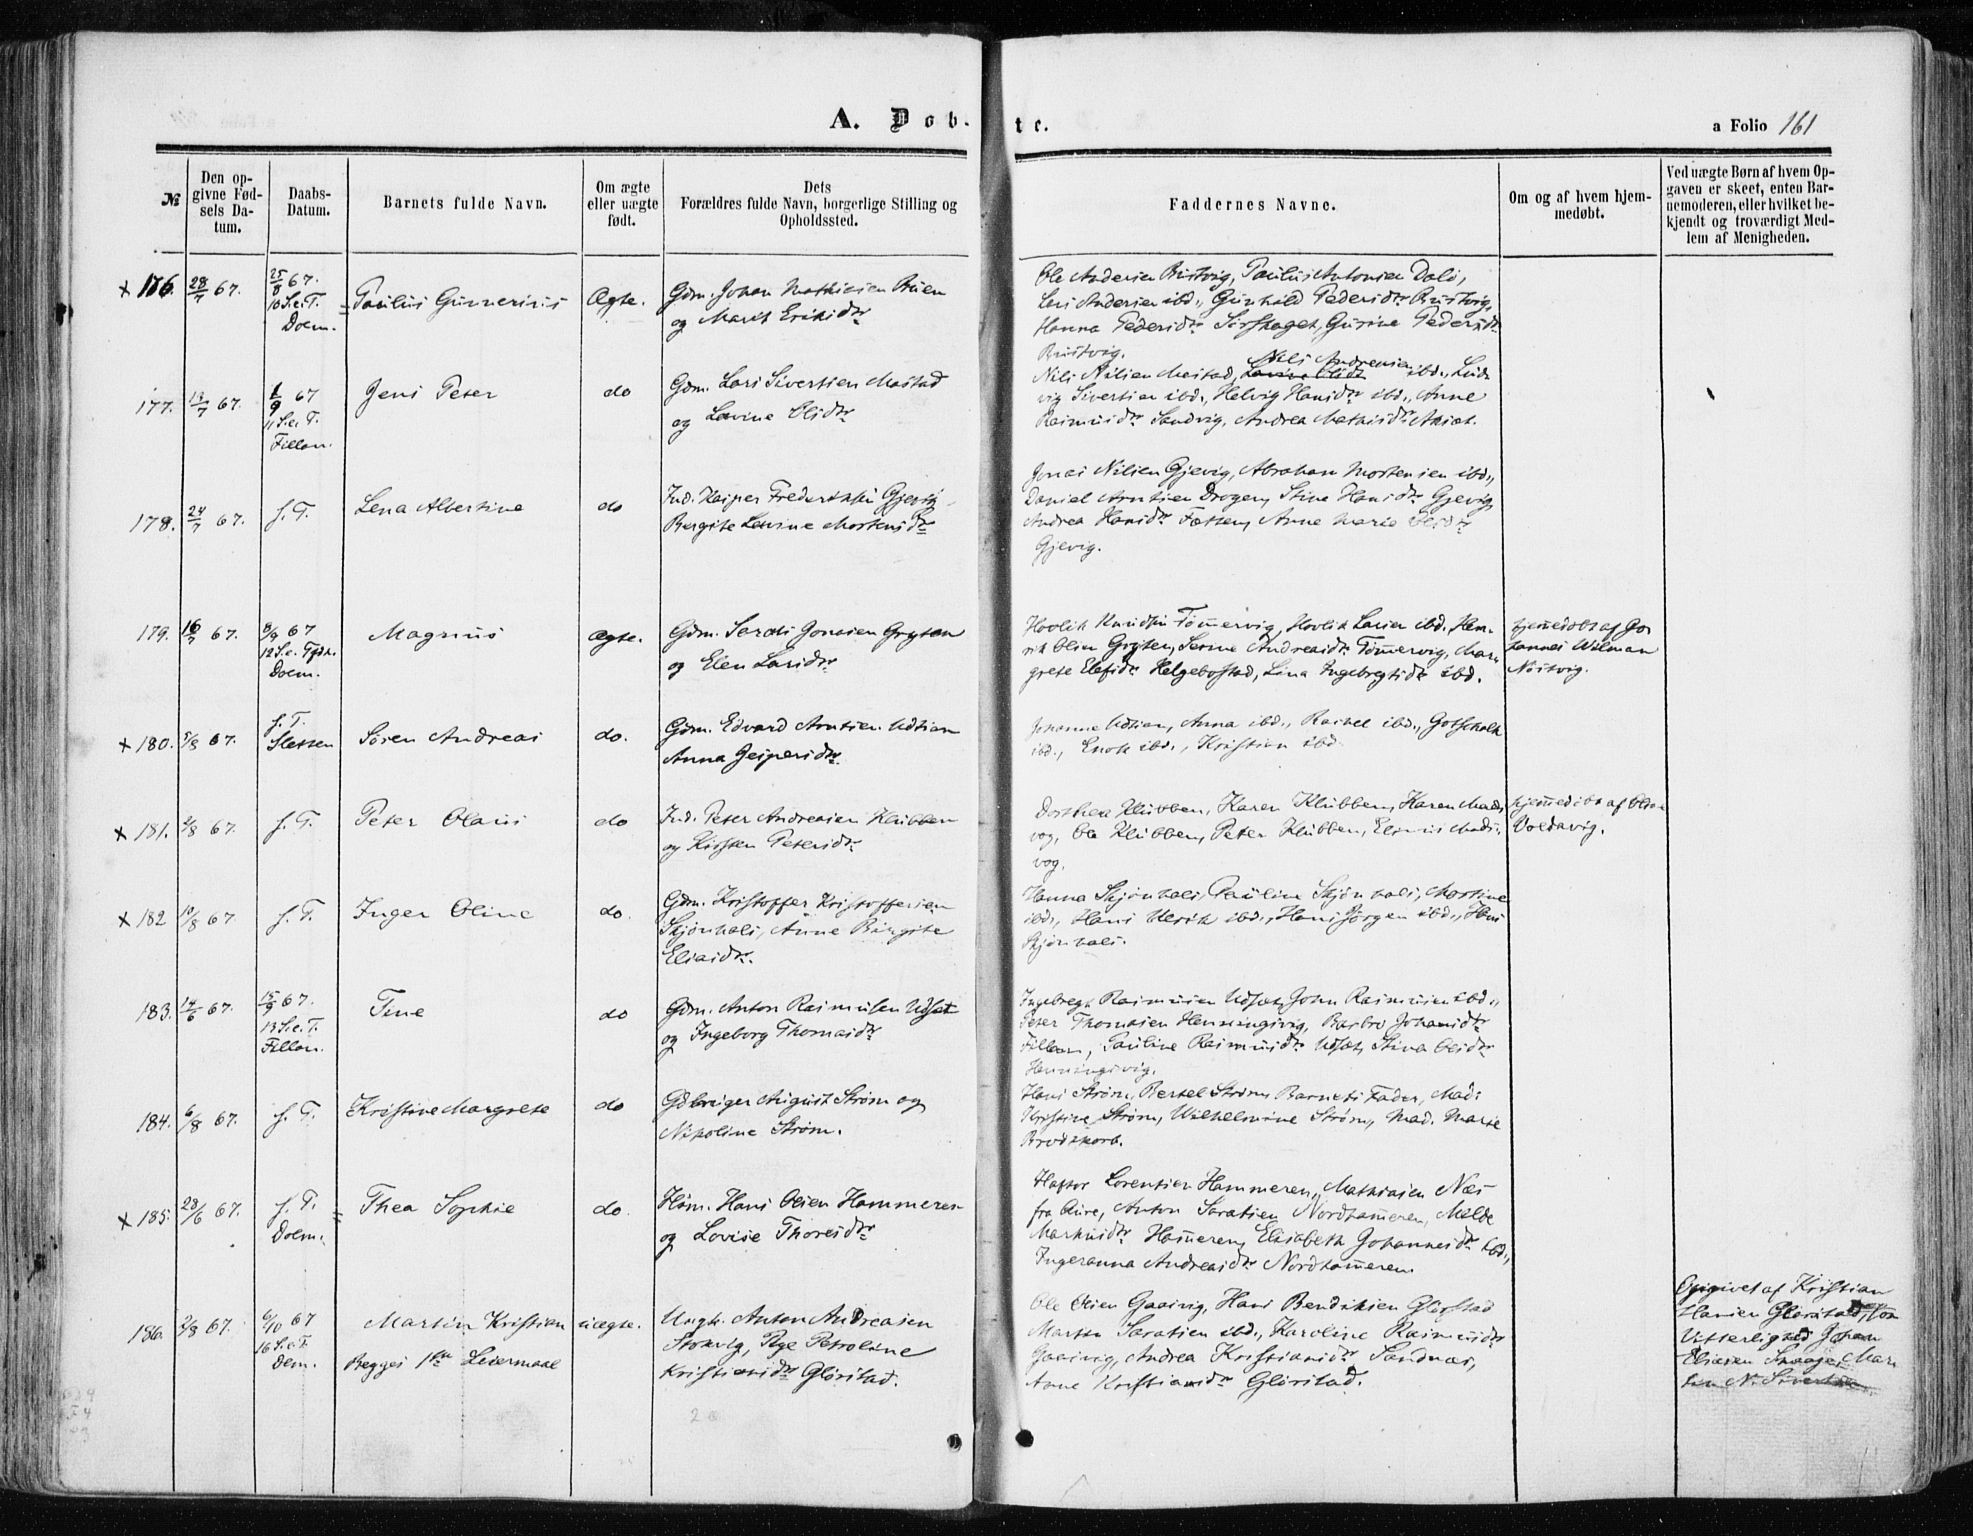 A. Døb-
te.
a Folio 161
№
Den op-
givne Fød-
sels Da-
tum.
Daabs-
Datum.
Barnets fulde Navn.
Om ægte
eller uægte
født.
Dets
Forældres fulde Navn, borgerlige Stilling og
Opholdssted.
Faddernes Navne.
Om og af hvem hjem-
medøbt.
Ved uægte Børn af hvem Op-
gaven er skeet, enten Bar-
nemoderen, eller hvilket be-
kjendt og troværdigt Med-
lem af Menigheden.
× 176. 28/7 67. 25/8 67. 10 S.e.T. Dolm. Paulus Gunnerius Ægte. Gdm. Johan Mathiasen
og Marit Eriksdtr
Ole Andersen Bustvig, Paulus Antonsen
Lars Andersen ibd., Gunhild Pedersdtr Bustvig,
Hanna Pedersdtr Gurine Pedersdtr
Bustvig.
177. 13/7 67. 1/9 67 11 S.e.T. Fillan. Jens Peter do Gdm. Lars Sivertsen Mastad
og Lovine Olsdtr
Nils Nilsen Mastad, Nils Andreasen ibd., Lud-
vig Sivertsen ibd., Helvig Hansdtr ibd., Anne
Rasmusdtr Sandvig, Andrea Mathisdtr
178. 24/7 67. f. T. Lena Albertine do Ind. Kasper Frederiksen Gjevig
Bergite Lovine Mortensdtr
Jonas Nilsen Gjevig, Abraham Mortensen ibd.,
Daniel Arntsen Drogen, Stine Hansdtr Gjevig,
Andrea Hansdtr Fætten, Anne Marie Olsdtr
Gjevig.
179. 16/7 67. 8/9 67 12 S.e. Dolm. Magnus Ægte. Gdm. Jonasen Gryten
og Elen Larsdtr
Hovlik Knudsen Tømmervig, Hovlik Larsen ibd., Hen-
rik Olsen Gryten, Serine Andreasdtr Tømmervig, Mar-
grete Helgebostad, Lina Ingebregtsdtr ibd.
hjemmedøbt af Jo-
hannes Wilman
× 180. 5/8 67. f. T. Sletten Søren Andreas do. Gdm. Edvard Arntsen Udtian
Anna Jespersdtr
Johanne Udtian, Anna ibd., Rachel ibd., Gotschalk
ibd., Enok ibd., Kristian ibd.
× 181. 2/8 67. f. T. Peter Olaus do Ind. Peter Andreasen Klubben
og Kirsten Petersdtr
Dorthea Klubben, Karen Klubben, Karen Mads-
vog, Ole Klubben, Peter Klubben, Mads-
vog.
hjemmedøbt af
Voldavig.
× 182 10/8 67. f. T. Inger Oline do. Gdm. Kristoffer Kristoffersen
Skjønhals, Anne Birgite
Eliasdtr.
Hanna Skjønhals, Pauline Skjønhals, Martine
ibd., Hans Ulrik ibd., Hans Jørgen ibd., Hans
Skjønhals.
183. 14/6 67. 15/9 67. 13 S.e.T. Fillan. Tine do Gdm. Anton Rasmusen Udsæt
og Ingeborg Thomasdtr
Ingebregt Rasmusen Udsæt, John Rasmusen ibd.,
Peter Thomasen Henningsvig, Barbro Johansdtr
Fillan, Pauline Rasmusdtr Udsæt, Stina Olsdtr
Henningsvig.
184. 6/8 67. f. T. Kristine Margrete do Gdbruger August Strøm og
Nikoline Strøm.
Hans Strøm, Bertel Strøm, Barnets Fader, Mad:
Kristine Strøm, Wilhelmine Strøm, Mad. Marie
Brodtkorb.
× 185. 28/6 67. f. T. Dolm. Thea Sophie do. Hsm. Hans Olsen Hammeren
og Lovise Thoresdtr
Haftor Lorentsen Hammeren, Mathiasen Næs
fra Aure, Anton Saratsen Nordhammeren, Milde
Markusdtr Hammeren, Elisabeth Johannesdtr ibd.,
Ingeranna Andreasdtr Nordhammeren
186. 2/8 67. 6/10 67 16 S.e.T. Dolm. Martin Kristian uægte. Ungk. Anton Andreasen
Begges 1ste Leiermaal
Stokvig, Pige Petroline
Kristiansdtr Gløsstad.
Ole Olsen Gaasvig, Hans Bendiksen Gløsstad
Morten Saratsen ibd., Karoline Rasmusdtr
Gaasvig, Andrea Kristiansdtr Sandnæs,
Anne Kristiansdtr Gløsstad.
Opgivet af Kristian
Hansen Gløsstad,
Vitterlighed Johan
Eliasen